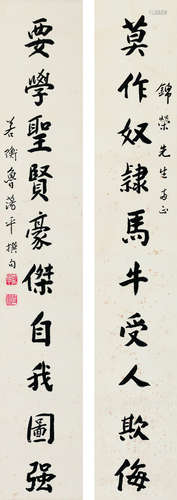 錦榮先生方正
莫作奴隸馬牛受人欺侮
要學聖賢豪傑自我圖强
若衡魯蕩平撰句